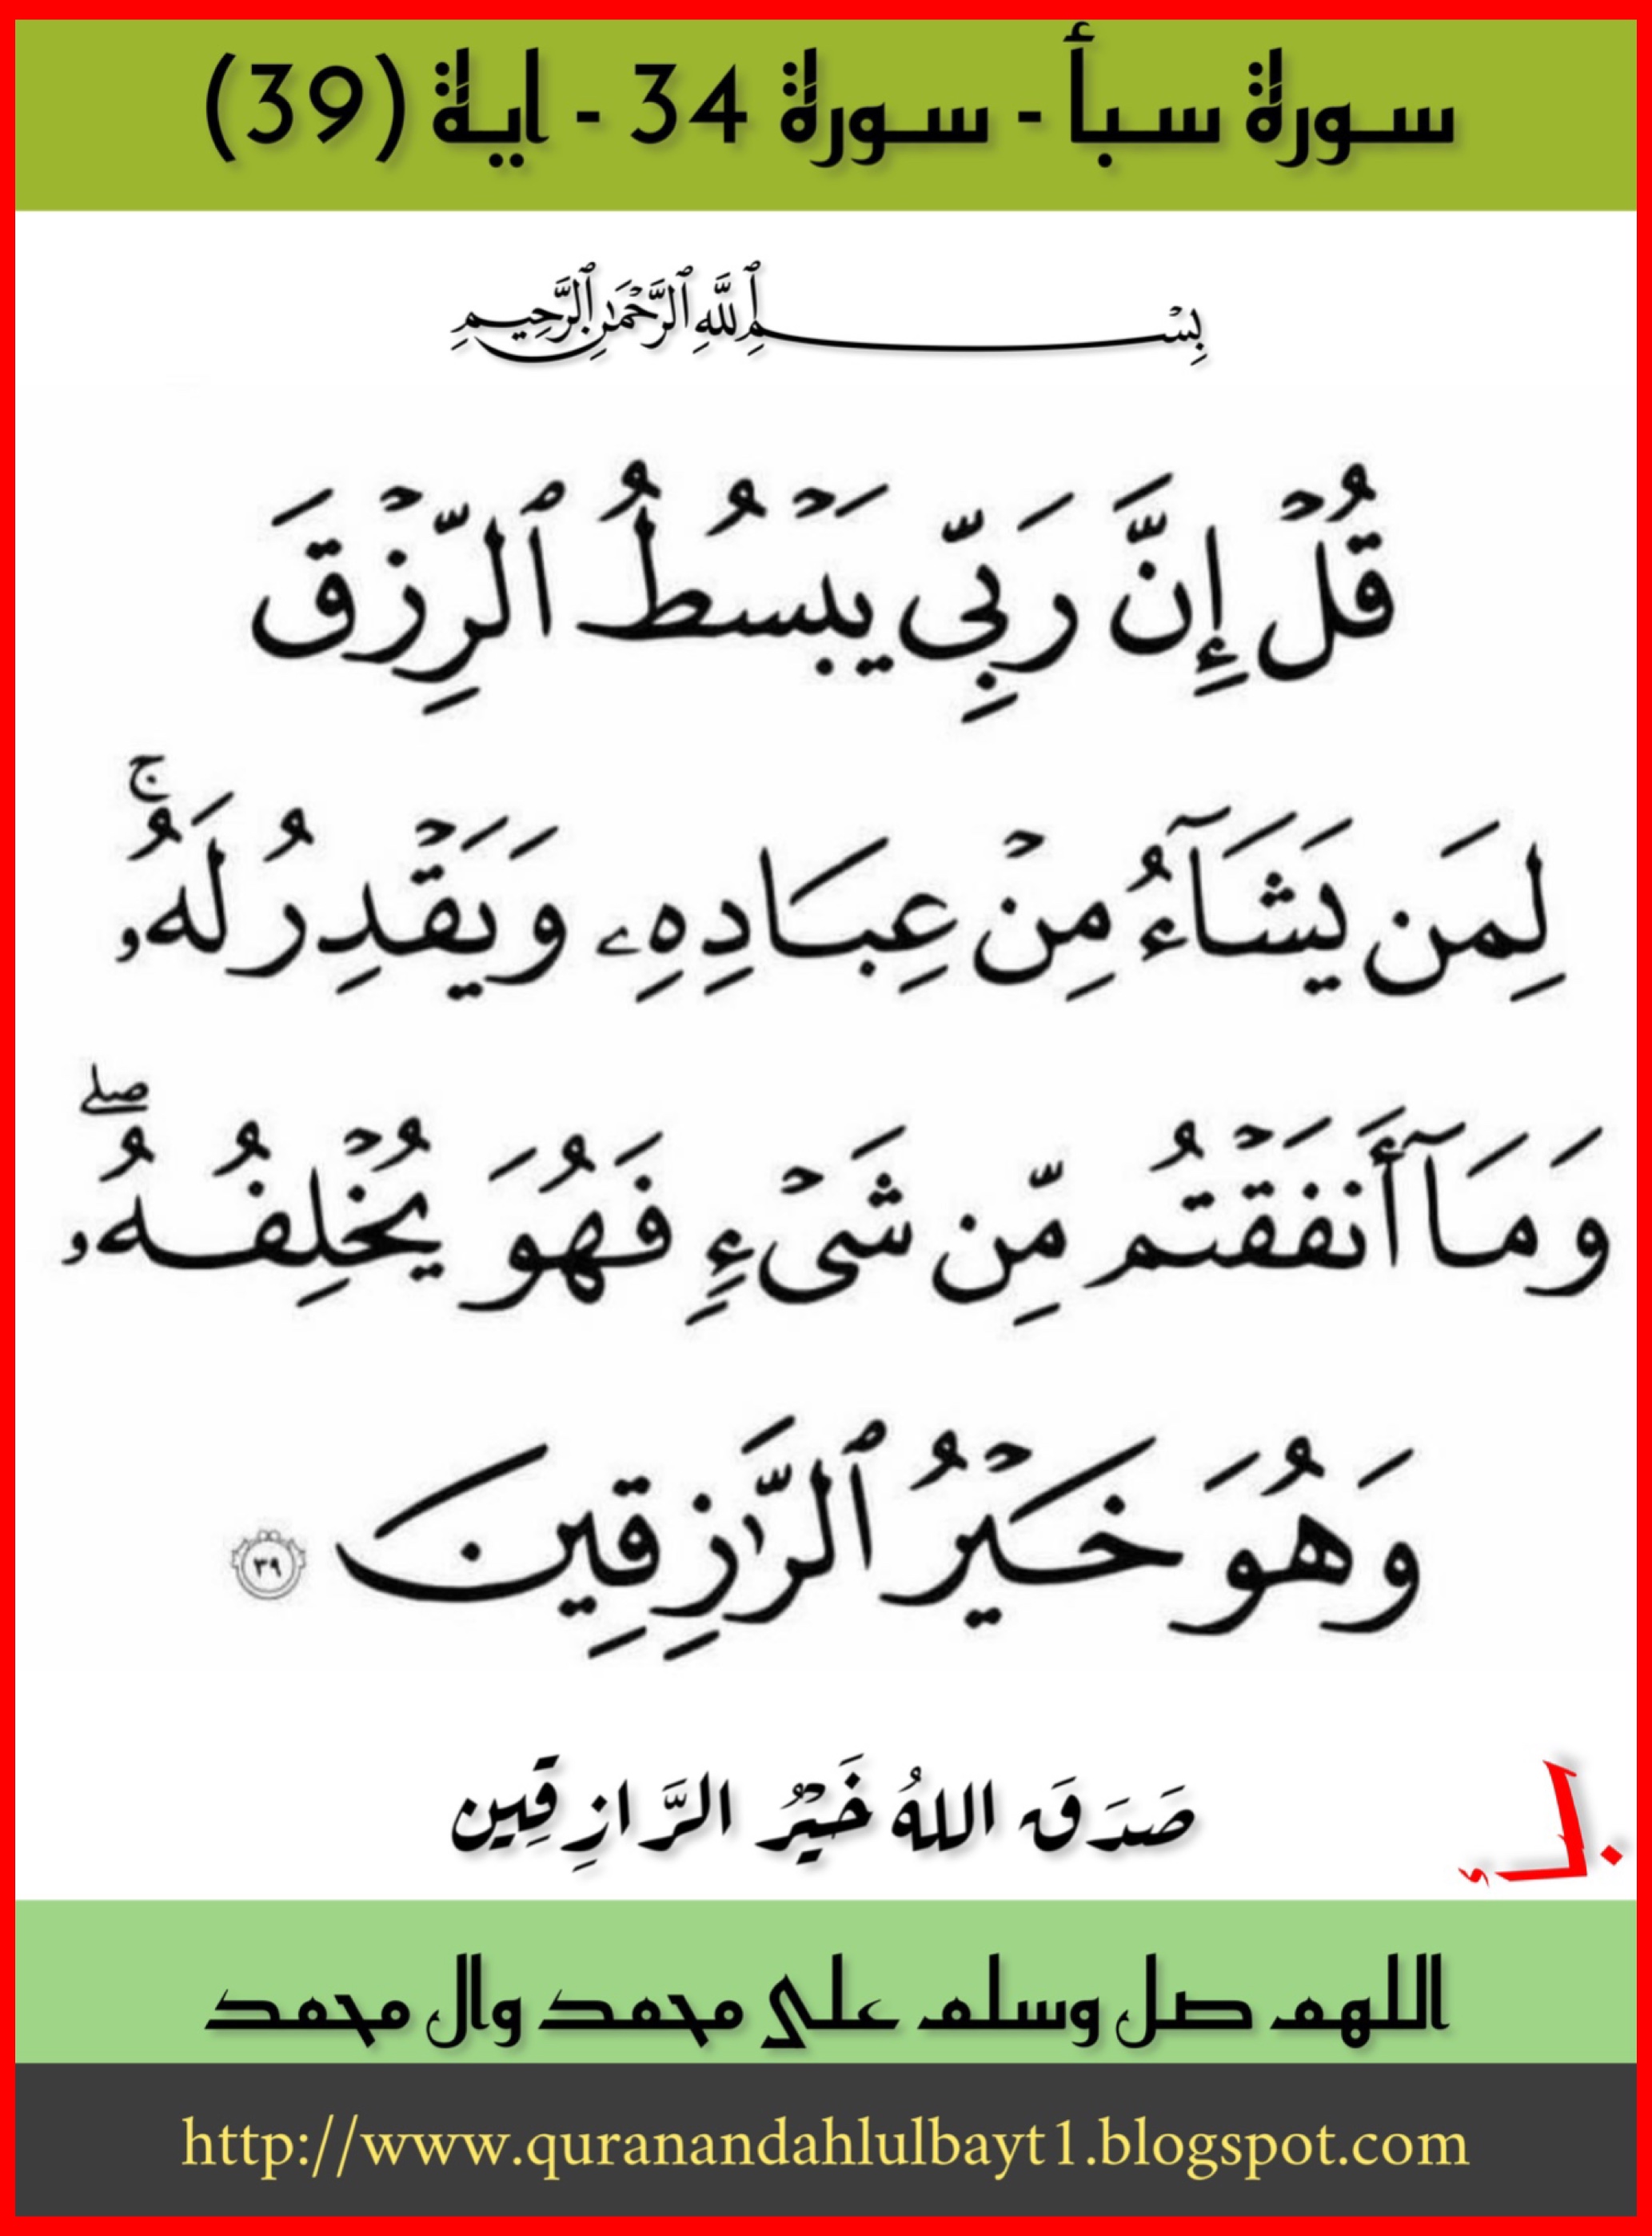 سورة سبأ - سورة 34 - اية (39)
بِسْمِ ٱللَّهِ ٱلرَّحْمَٰنِ ٱلرَّحِيمِ
قُلْ إِنَّ رَبِّي يَبْسُطُ ٱلرِّزْقَ
لِمَن يَشَآءُ مِنْ عِبَادِهِۦ وَيَقْدِرُ لَهُۥۚ
وَمَآ أَنفَقْتُم مِّن شَىْءٍ فَهُوَ يُخْلِفُهُۥۖ
وَهُوَ خَيْرُ ٱلرَّٰزِقِينَ ٣٩
صَدَقَ اللهُ خَيْرُ الرَّازِقِين
اللهم صل وسلم على محمد وال محمد
http://www.quranandahlulbayt1.blogspot.com